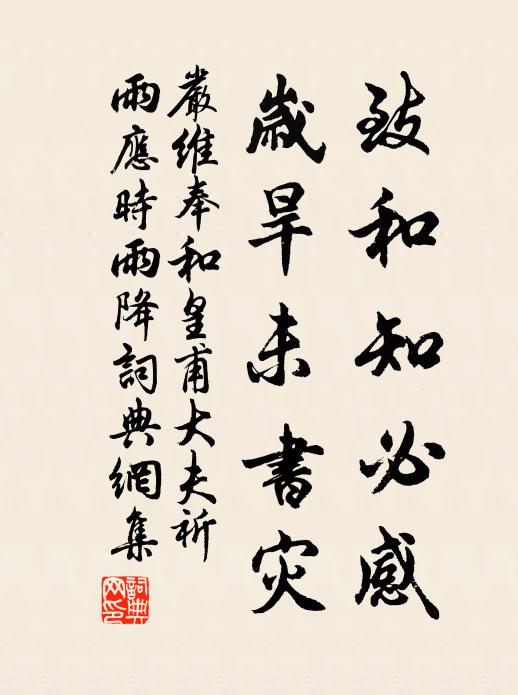 致和知必感
歲旱未書灾
嚴維奉和皇甫大夫祈
雨應時雨降詞典網集
詞典
网印